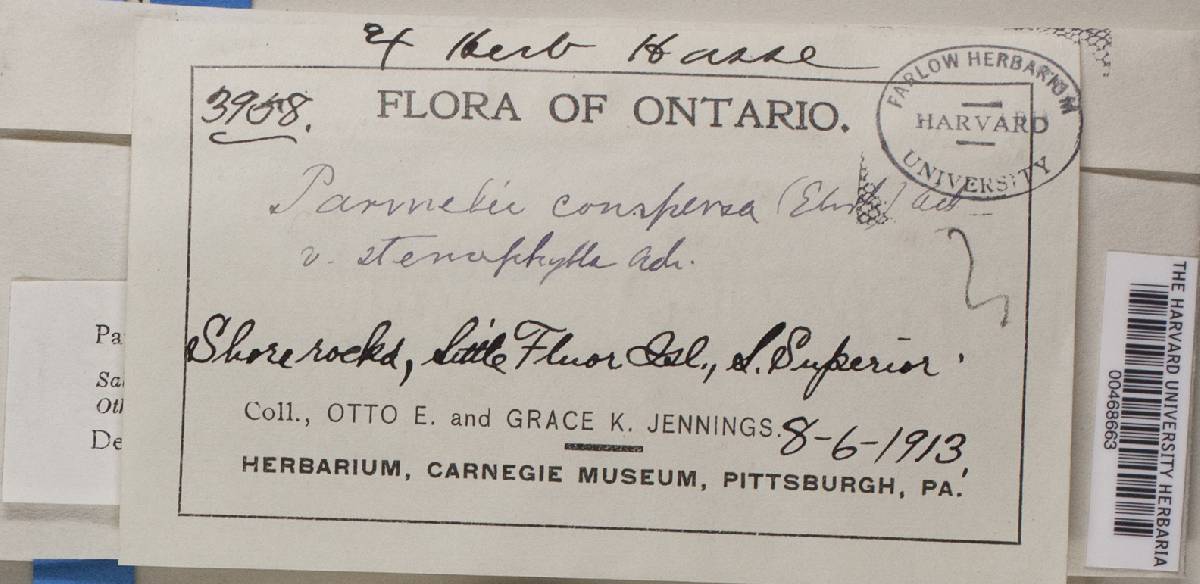 Herb Hasse
3958.
FLORA OF ONTARIO.
FARLOW HERBARIUM
HARVARD
UNIVERSITY
Parmelia conspersa (Ehrh.) Ach
v. stenophylla Ach.
Shore rocks, Little Fluor Isl., L. Superior.
Coll., OTTO E. and GRACE K. JENNINGS. 8-6-1913.
HERBARIUM, CARNEGIE MUSEUM, PITTSBURGH, PA.
Pa
Sa
Oth
De
THE HARVARD UNIVERSITY HERBARIA
00468663